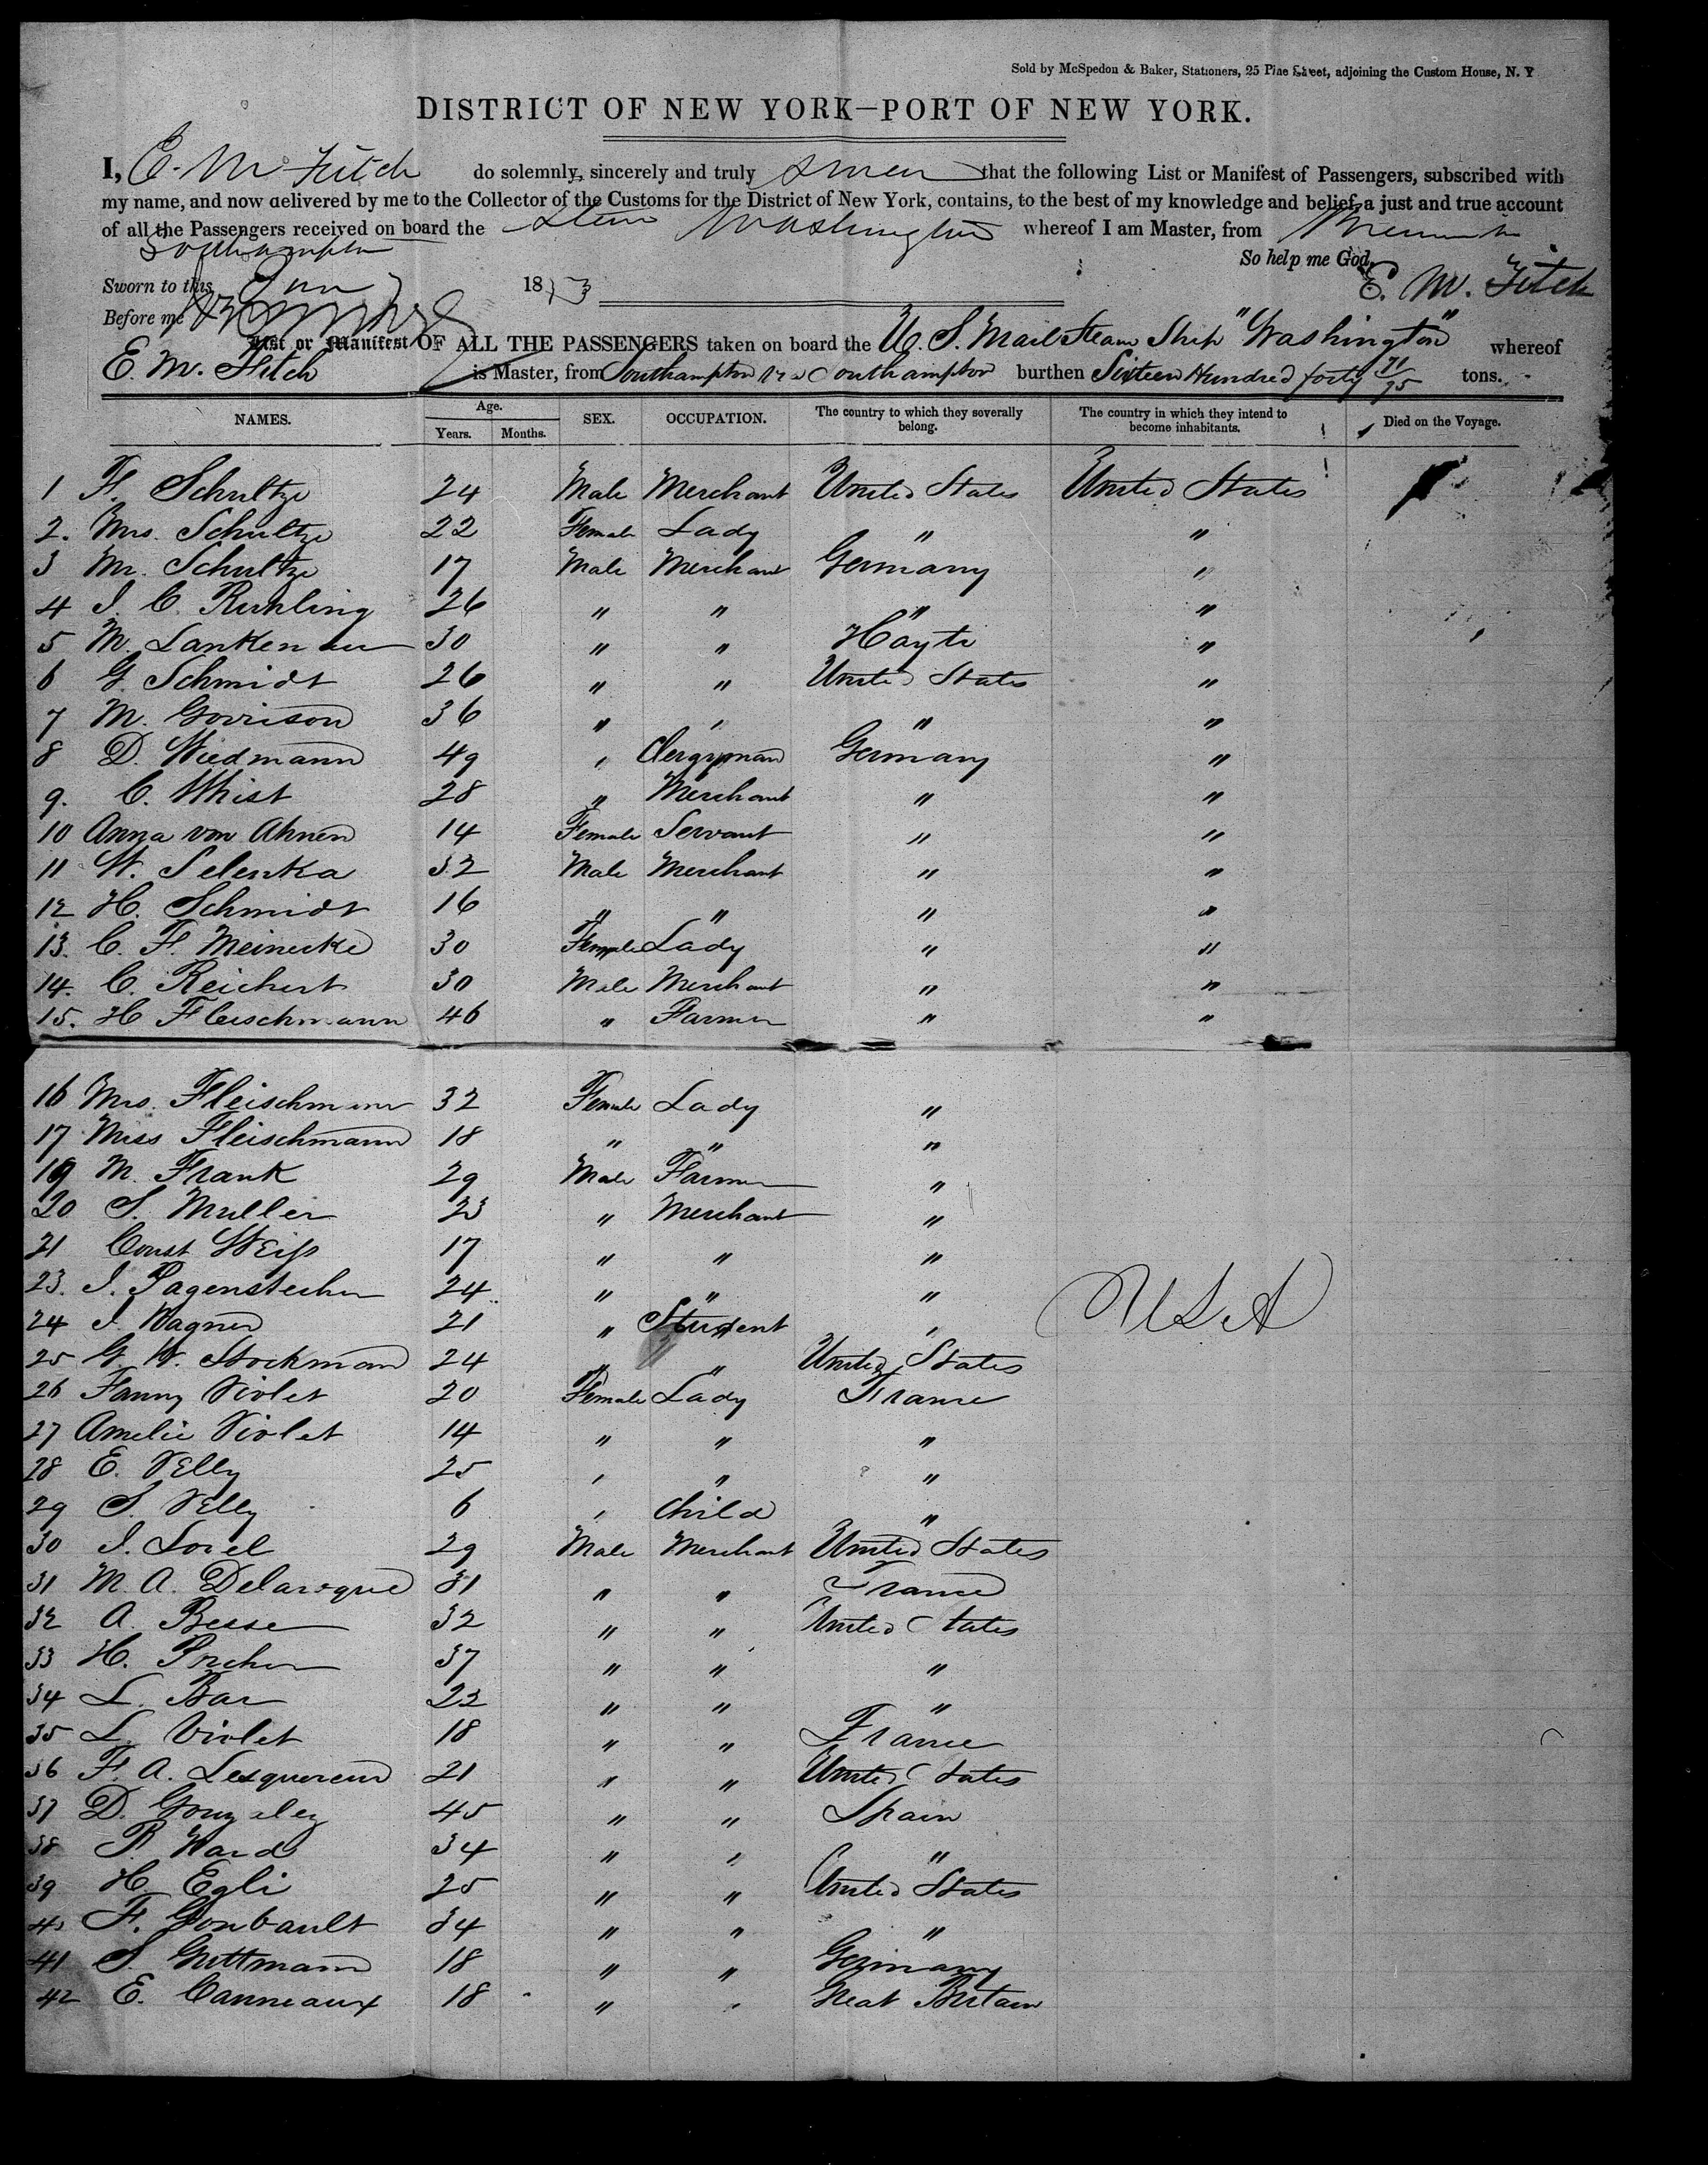 Sold by McSpedon & Baker, Stationers, 25 Pine Street, adjoining the Custom House, N. Y
DISTRICT OF NEW YORK—PORT OF NEW YORK.
I, E. M Fitch do solemnly, sincerely and truly swear that the following List or Manifest of Passengers, subscribed with
my name, and now delivered by me to the Collector of the Customs for the District of New York, contains, to the best of my knowledge and belief, a just and true account
of all the Passengers received on board the Steam Washington whereof I am Master, from Bremen
Southampton
So help me God.
Sworn to this Jan 1853 E. M. Fitch
Before me
List or Manifest OF ALL THE PASSENGERS taken on board the U. S. Mail Steam Ship "Washington" whereof
E. M. Fitch is Master, from Southampton Southampton burthen Sixteen Hundred forty 71/95 tons.
NAMES. Age. SEX. OCCUPATION. The country to which they severally belong. The country in which they intend to become inhabitants. Died on the Voyage.
Years. Months.
1 F. Schultze 24 Male Merchant United States United States
2. Mrs. Schultze 22 Female Lady " "
3 Mr. Schultze 17 Male Merchant Germany "
4 I. C. Ruhling 26 " " " "
5 M. Lankenau 30 " " Hayti "
6 G. Schmidt 26 " " United States "
7 M. Gorrison 36 " " " "
8 D. Wiedmann 49 " Clergyman Germany "
9. C. Whist 28 " Merchant " "
10 Anna von Ahnen 14 Female Servant " "
11 W. Selenka 32 Male Merchant " "
12 H. Schmidt 16 " " " "
13. C. F. Meinecke 30 Female Lady " "
14. C. Reichert 30 Male Merchant " "
15. H Fleischmann 46 " Farmer " "
16 Mrs. Fleischmann 32 Female Lady "
17 Miss Fleischmann 18 " " "
19 M. Frank 29 Male Farmer "
20 S. Muller 23 " Merchant "
21 Const Weiss 17 " " "
23. I. Pagenstecher 24 " " " USA
24 I. Wagner 21 " Student "
25 G. W. Stockman 24 " " United States
26 Fanny Violet 20 Female Lady France
27 Amelie Violet 14 " " "
28 E. Velly 25 " " "
29 S. Velly 6 " Child "
30 I. Lovel 29 Male Merchant United States
31 M. A. Delaroque 31 " " France
32 A. Besse 32 " " United States
33 H. Porcher 37 " " "
34 L. Bar 23 " " "
35 L. Violet 18 " " France
36 F. A. Lesquereux 21 " " United States
37 D. Gonzaley 45 " " Spain
38 P. Ward 34 " " "
39 H Egli 25 " " United States
40 F. Gonbault 34 " " "
41 S. Guttmann 18 " " Germany
42 E. Canneaux 18 " " Great Britain